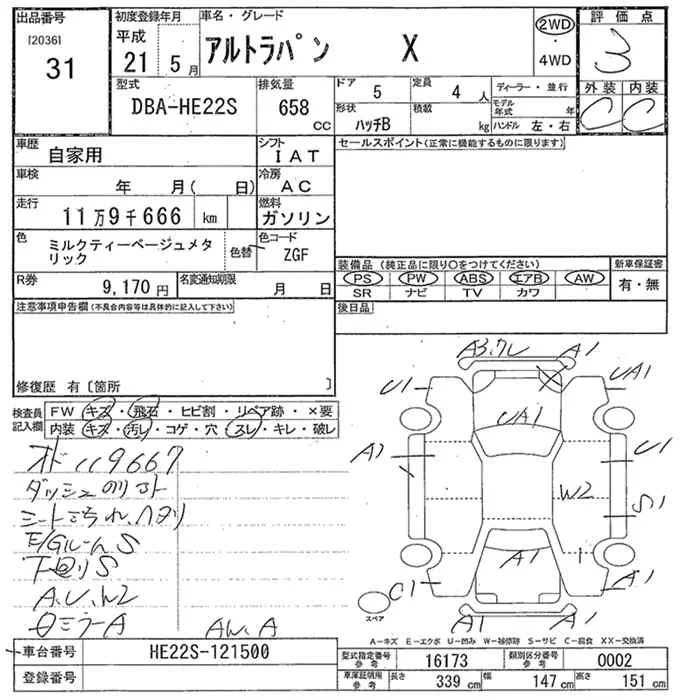 出品番号 初度登録年月 車名・グレード 2WD 評価点
[2036] 平成 アルトラパン X ・ 3
31 21 5月 4WD 外装 内装
型式 排気量 ドア 定員 ディーラー・並行 C C
DBA-HE22S 658 cc 5 4人 モデル年式 年
形状 積載
ハッチB kg ハンドル 左・右
車歴 シフト セールスポイント(正常に機能するものに限ります)
自家用 IAT
車検 冷房
年 月( 日) AC
走行 燃料
11万9千666 km ガソリン
色 色コード
ミルクティーベージュメタリック 色替 ZGF
装備品 (純正品に限り〇をつけてください) 新車保証書
PS PW ABS エアB AW 有・無
SR ナビ TV カワ
R券 名変通知期限
9,170円 月 日
後日品
注意事項申告欄(不具合内容等は具体的に記入して下さい)
修復歴 有〔箇所 〕
検査員記入欄
FW キズ・飛石・ヒビ割・リペア跡・×要
内装 キズ・汚レ・コゲ・穴・スレ・キレ・破レ
オド119667
ダッシュのりあト
シートこすれ、ヘタリ
E/GルームS
下廻りS
A、U、W2
Dミラー A AW、A
A3,ワレ A1
U1 UA1
UA1
A1 U1
W2 S1
A1
C1 A1
A1 A1
スペア
A-キズ E-エクボ U-凹み W-補修跡 S-サビ C-腐食 XX-交換済
車台番号 HE22S-121500
登録番号
型式指定番号 参考 16173 類別区分番号 参考 0002
車庫証明用 参考 長さ 339 cm 幅 147 cm 高さ 151 cm